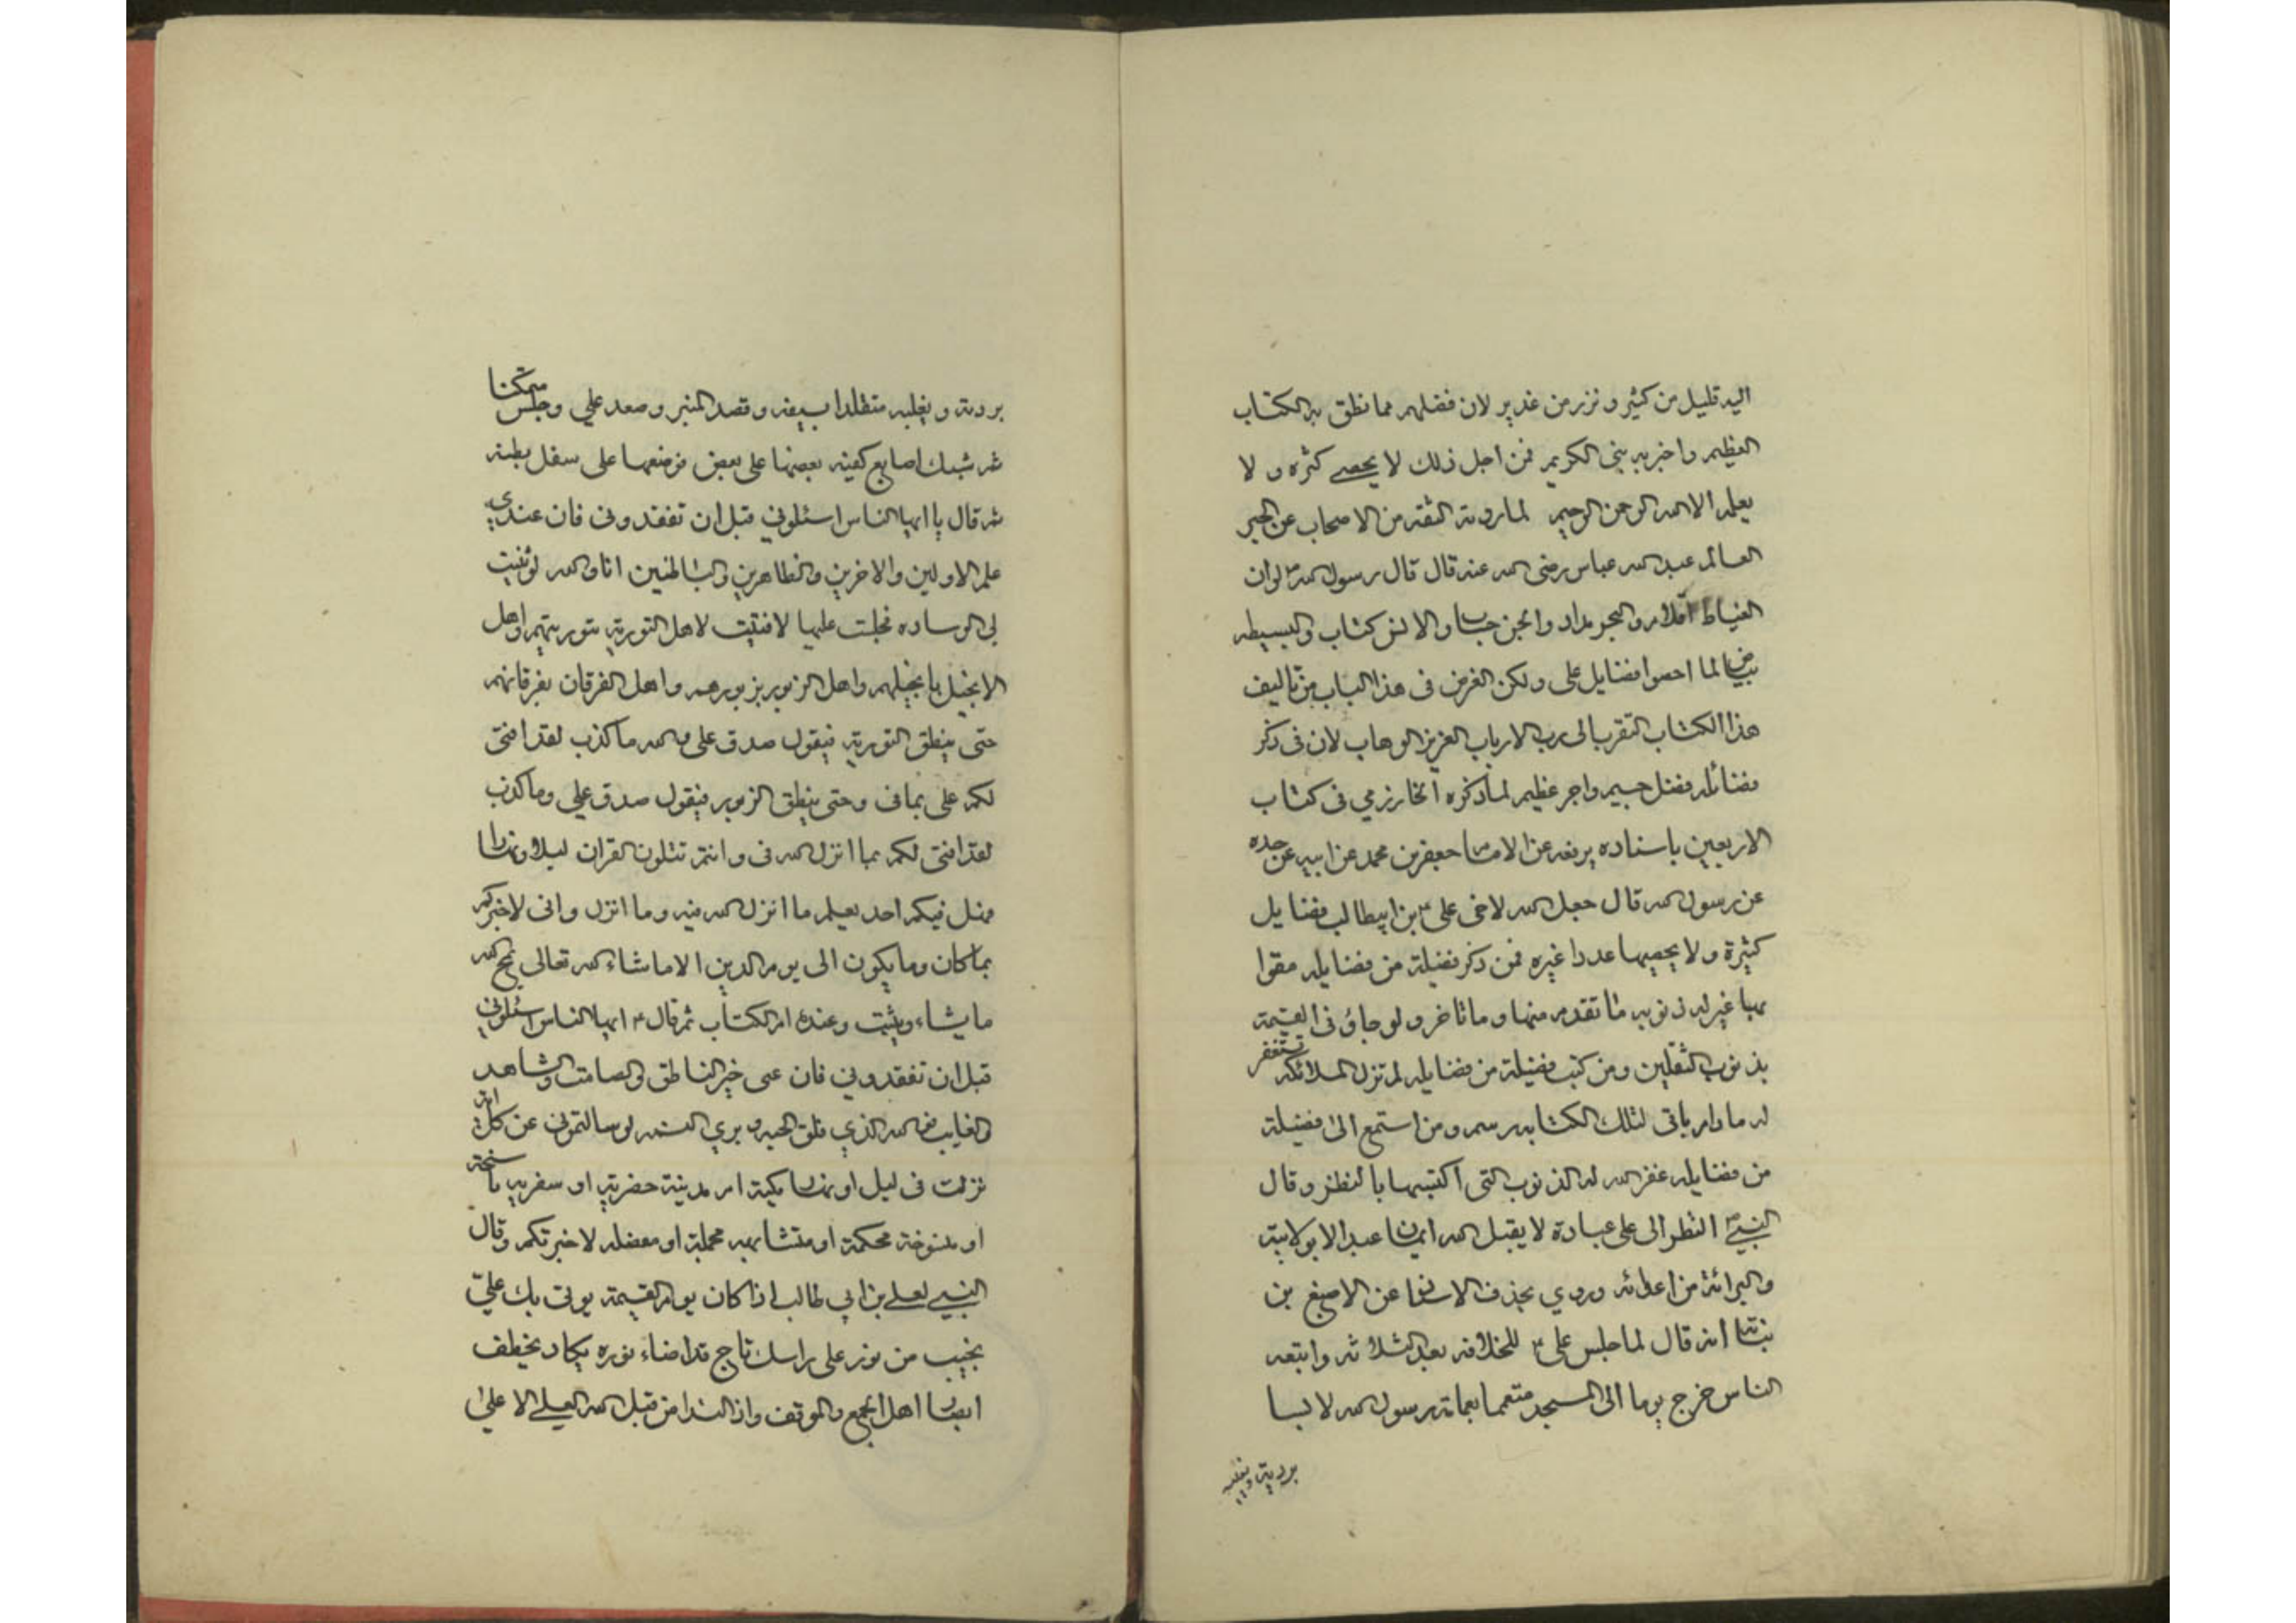 اليه قليل من كثير و نزر من غدير لان فضلهم مما نطق به الكتاب
العظيم و اخبر به نبى الكريم فمن اجل ذلك لا يحصى كثره و لا
يعلمه الا الله الرحمن الرحيم لما رويته الثقة من الاصحاب عن الحبر
العالم عبد الله عباس رضى الله عنه قال قال رسول الله ص لو ان
الغياط اقلام و البحر مداد و الجن حساب و الانس كتاب و البسيطه
بياض لما احصوا فضايل على و لكن الغرض فى هذا الباب من تاليف
هذا الكتاب التقرب الى رب الارباب العزيز الوهاب لان فى ذكر
فضائله فضل جسيم و اجر عظيم لما ذكره الخارزمي فى كتاب
الاربعين باسناده يرفعه عن الامام جعفر بن محمد عن ابيه عن جده
عن رسول الله قال جعل الله لاخى على ع بن ابيطالب فضايل
كثيرة و لا يحصيها عددا غيره فمن ذكر فضيلة من فضايله مقرا
بها غفر له ذنوبه ما تقدم منها و ما تاخر و لو جاؤ فى القيمة
بذنوب الثقلين و من كتب فضيلة من فضايله لم تزل الملائكه تستغفر
له ما دام باقى لتلك الكتابه رسم و من استمع الى فضيلة
من فضايله غفر الله له الذنوب التى اكتسبها بالنظر و قال
النبي ص النظر الى على عبادة لا يقبل الله ايمان عبد الا بولايته
و البرائة من اعدائه و روي بحذف الاسناد عن الاصبغ بن
نباتة انه قال لما جلس على ع للخلافه بعد الثلاثه و اتبعه
الناس خرج يوما الى المسجد متعمما بعمامة رسول الله لابسا
بردته و نعليه
بردته و نعليه متقلدا بسيفه و قصد المنبر و صعد علي و جلس متمكنا
ثم شبك اصابع كفيه بعضها على بعض فوضعها على سفل بطنه
ثم قال يا ايها الناس اسئلوني قبل ان تفقدونى فان عندي
علم الاولين و الاخرين و الظاهرين و الباطنين انا و الله لو ثنيت
لى الوساده فجلست عليها لافتيت لاهل التورية بتوريتهم و اهل
الانجيل بانجيلهم و اهل الزبور بزبورهم و اهل الفرقان بفرقانهم
حتى ينطق التورية فيقول صدق على و الله ما كذب لقد افتى
لكم على بما فى و حتى ينطق الزبور فيقول صدق علي و ما كذب
لقد افتى لكم بما انزل الله فى و انتم تتلون القران ليلا و نهارا
فهل فيكم احد يعلم ما انزل الله فيه و ما انزل و انى لاخبركم
بما كان و ما يكون الى يوم الدين الا ما شاء الله تعالى يمح الله
ما يشاء و يثبت و عنده ام الكتاب ثم قال ع ايها الناس اسئلوني
قبل ان تفقدوني فان عى خبر الناطق و الصامت و الشاهد
و الغايب فو الله الذي فلق الحبه و بري النسمه لو سالتمونى عن كل اية
نزلت فى ليل او نهار مكية ام مدينة حضرية او سفريه ناسخة
او منسوخة محكمة او متشابهه مجملة او مفصله لاخبرتكم و قال
النبي لعلي بن ابي طالب اذا كان يوم القيمة يوتى بك علي
نجيب من نور على راسك تاج قد اضاء نوره يكاد يخطف
ابصار اهل الجمع و الموقف و اذ النداء من قبل الله العلي الا على